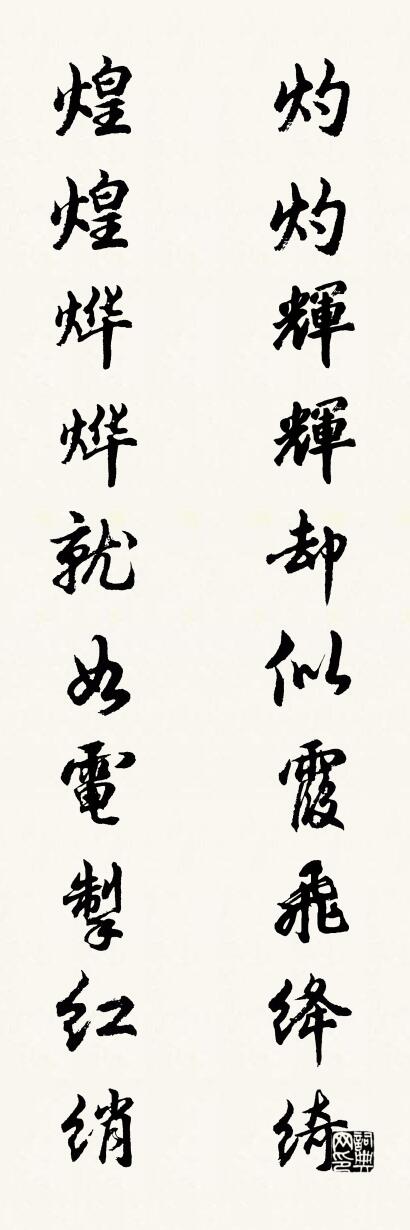 灼灼輝輝却似霞飛绛绮
煌煌烨烨就如電掣红绡
詞典
网印